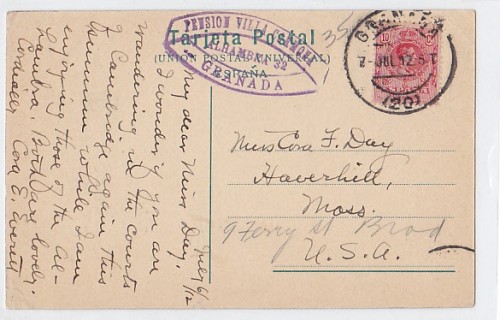 Tarjeta Postal
(UNIÓN POSTAL UNIVERSAL)
ESPAÑA
PENSION VILLA CARMONA
ALHAMBRA
GRENADA
GRANADA
7-JUL 12
(20)
10
July 6/12
My dear Miss Day,
I wonder if you are
wandering in the courts
of Cambridge again this
summer while I am
enjoying those of the Al-
hambra. Both are lovely.
Cordially
Cora E. Everett
Miss Cora F. Day
Haverhill,
Mass.
9 Ferry St Brad
U.S.A.